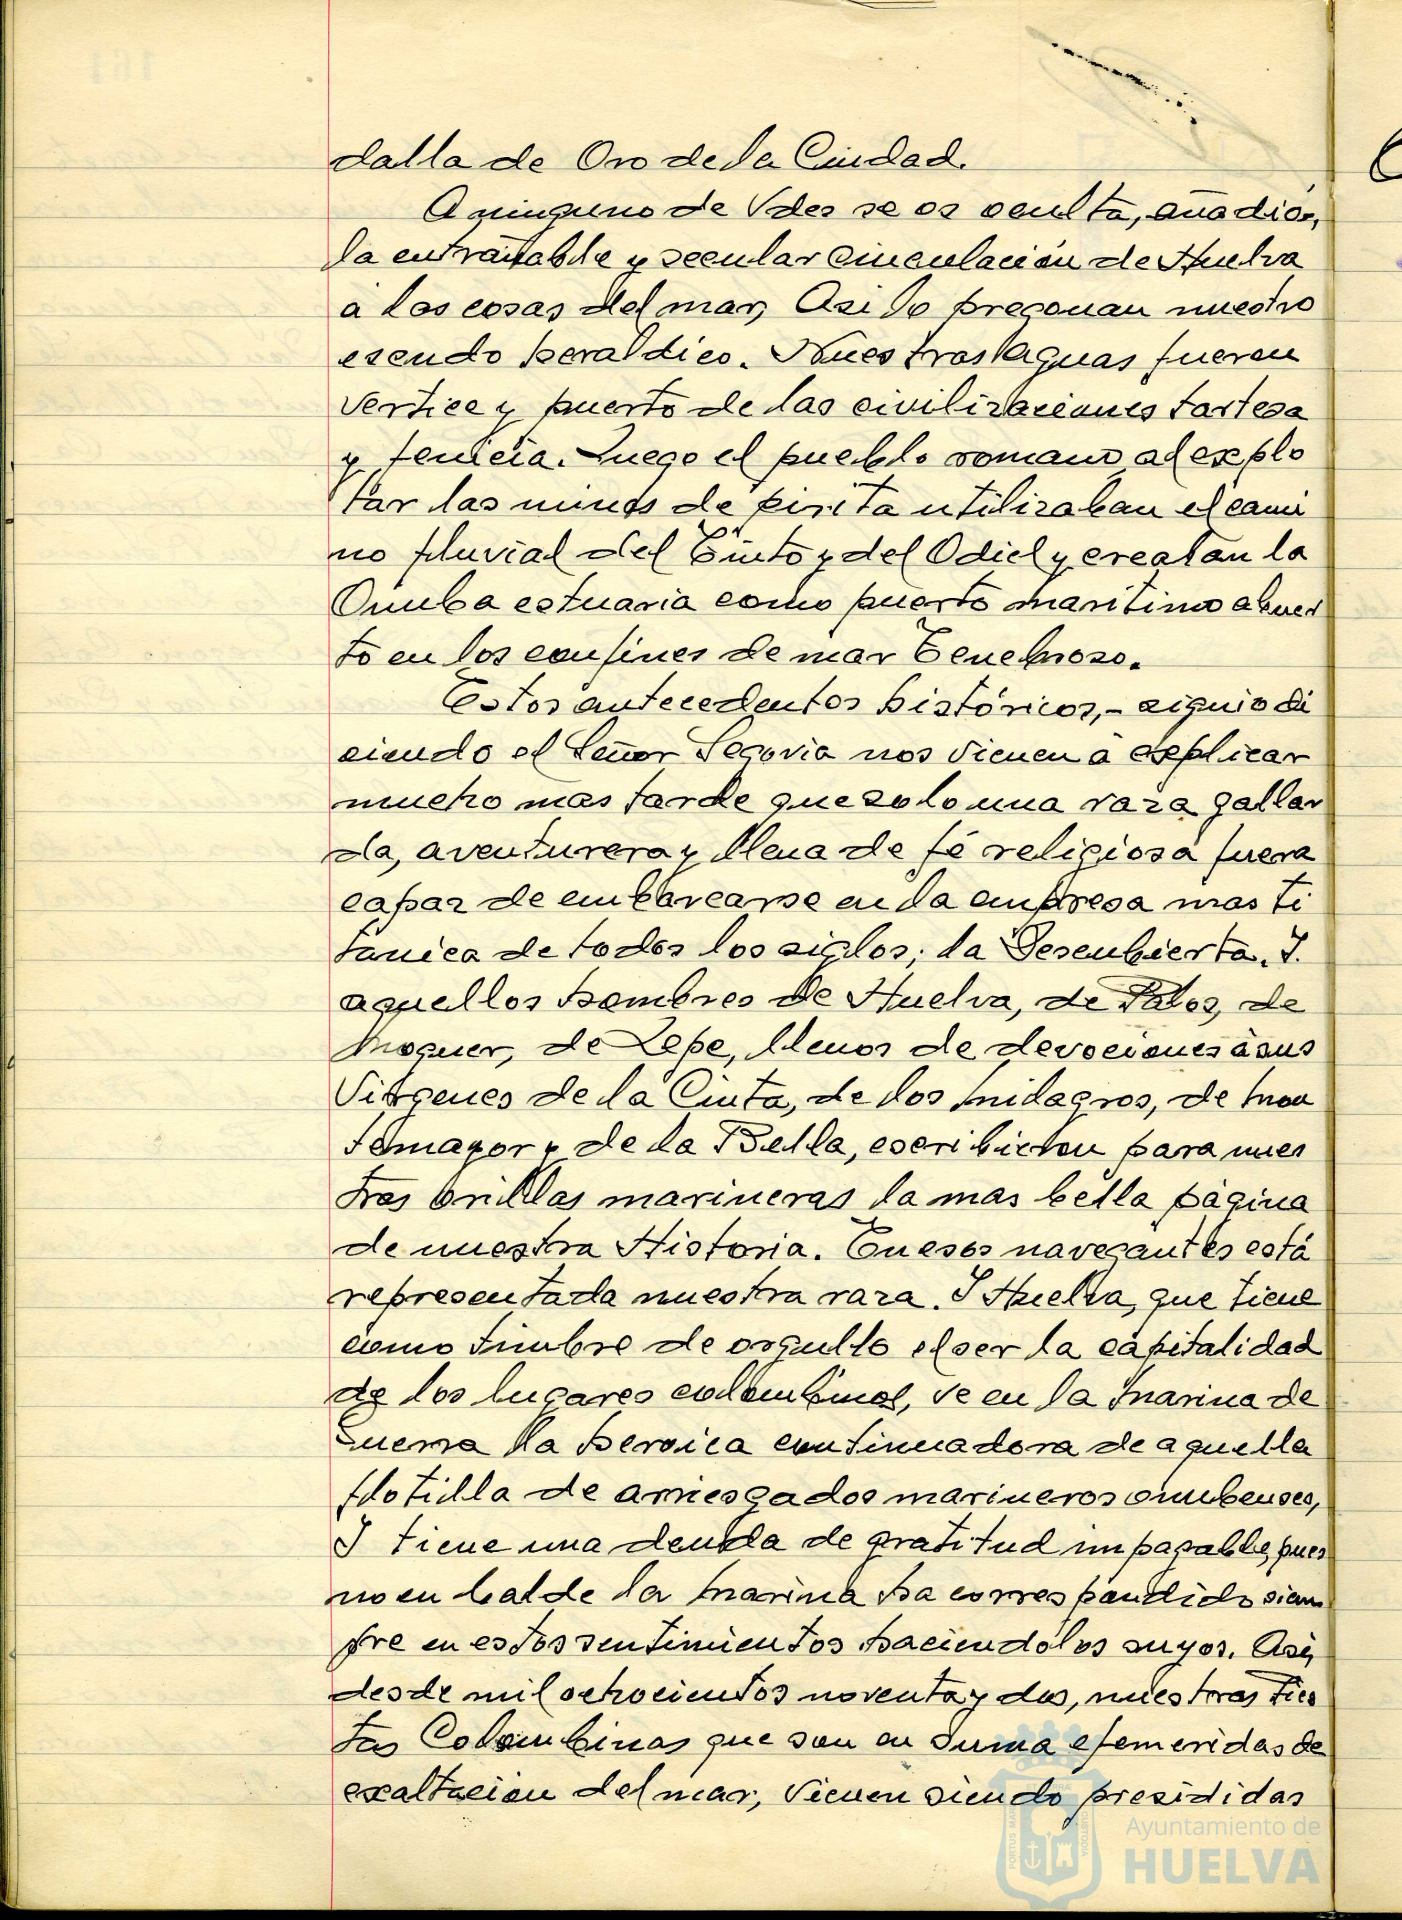 dalla de Oro de la Ciudad.
A ninguno de Vdes se os oculta, añadió,
la entrañable y secular vinculación de Huelva
a las cosas del mar, Asi lo pregonan nuestro
escudo heraldico. Nuestras aguas fueron
vertice y puerto de las civilizaciones tartesa
y fenicia. Luego el pueblo romano al explo
tar las minas de pirita utilizaban el cami
no fluvial del Tinto y del Odiel y creaban la
Onuba estuaria como puerto maritimo abier
to en los confines de mar Tenebroso.
Estos antecedentes históricos,- siguio di
ciendo el Señor Segovia nos vienen a explicar
mucho mas tarde que solo una raza gallar
da, aventurera y llena de fé religiosa fuera
capaz de embarcarse en la empresa mas ti
tanica de todos los siglos; la Descubierta. I.
aquellos hombres de Huelva, de Palos, de
Moguer, de Lepe, llenos de devociones a sus
Virgenes de la Cinta, de los Milagros, de Mon
temayor y de la Bella, escribieron para nues
tras orillas marineras la mas bella página
de nuestra Historia. En esos navegantes está
representada nuestra raza. I Huelva, que tiene
como timbre de orgullo el ser la capitalidad
de los lugares colombinos, ve en la Marina de
Guerra la heroica continuadora de aquella
flotilla de arriesgados marineros onubenses,
I tiene una deuda de gratitud impagable, pues
no en balde la Marina ha correspondido siem
pre en estos sentimientos haciendolos suyos. Asi,
desde mil ochocientos noventa y dos, nuestras Fies
tas Colombinas que son en suma efemeridas de
exaltación del mar, vienen siendo presididas
Ayuntamiento de
HUELVA